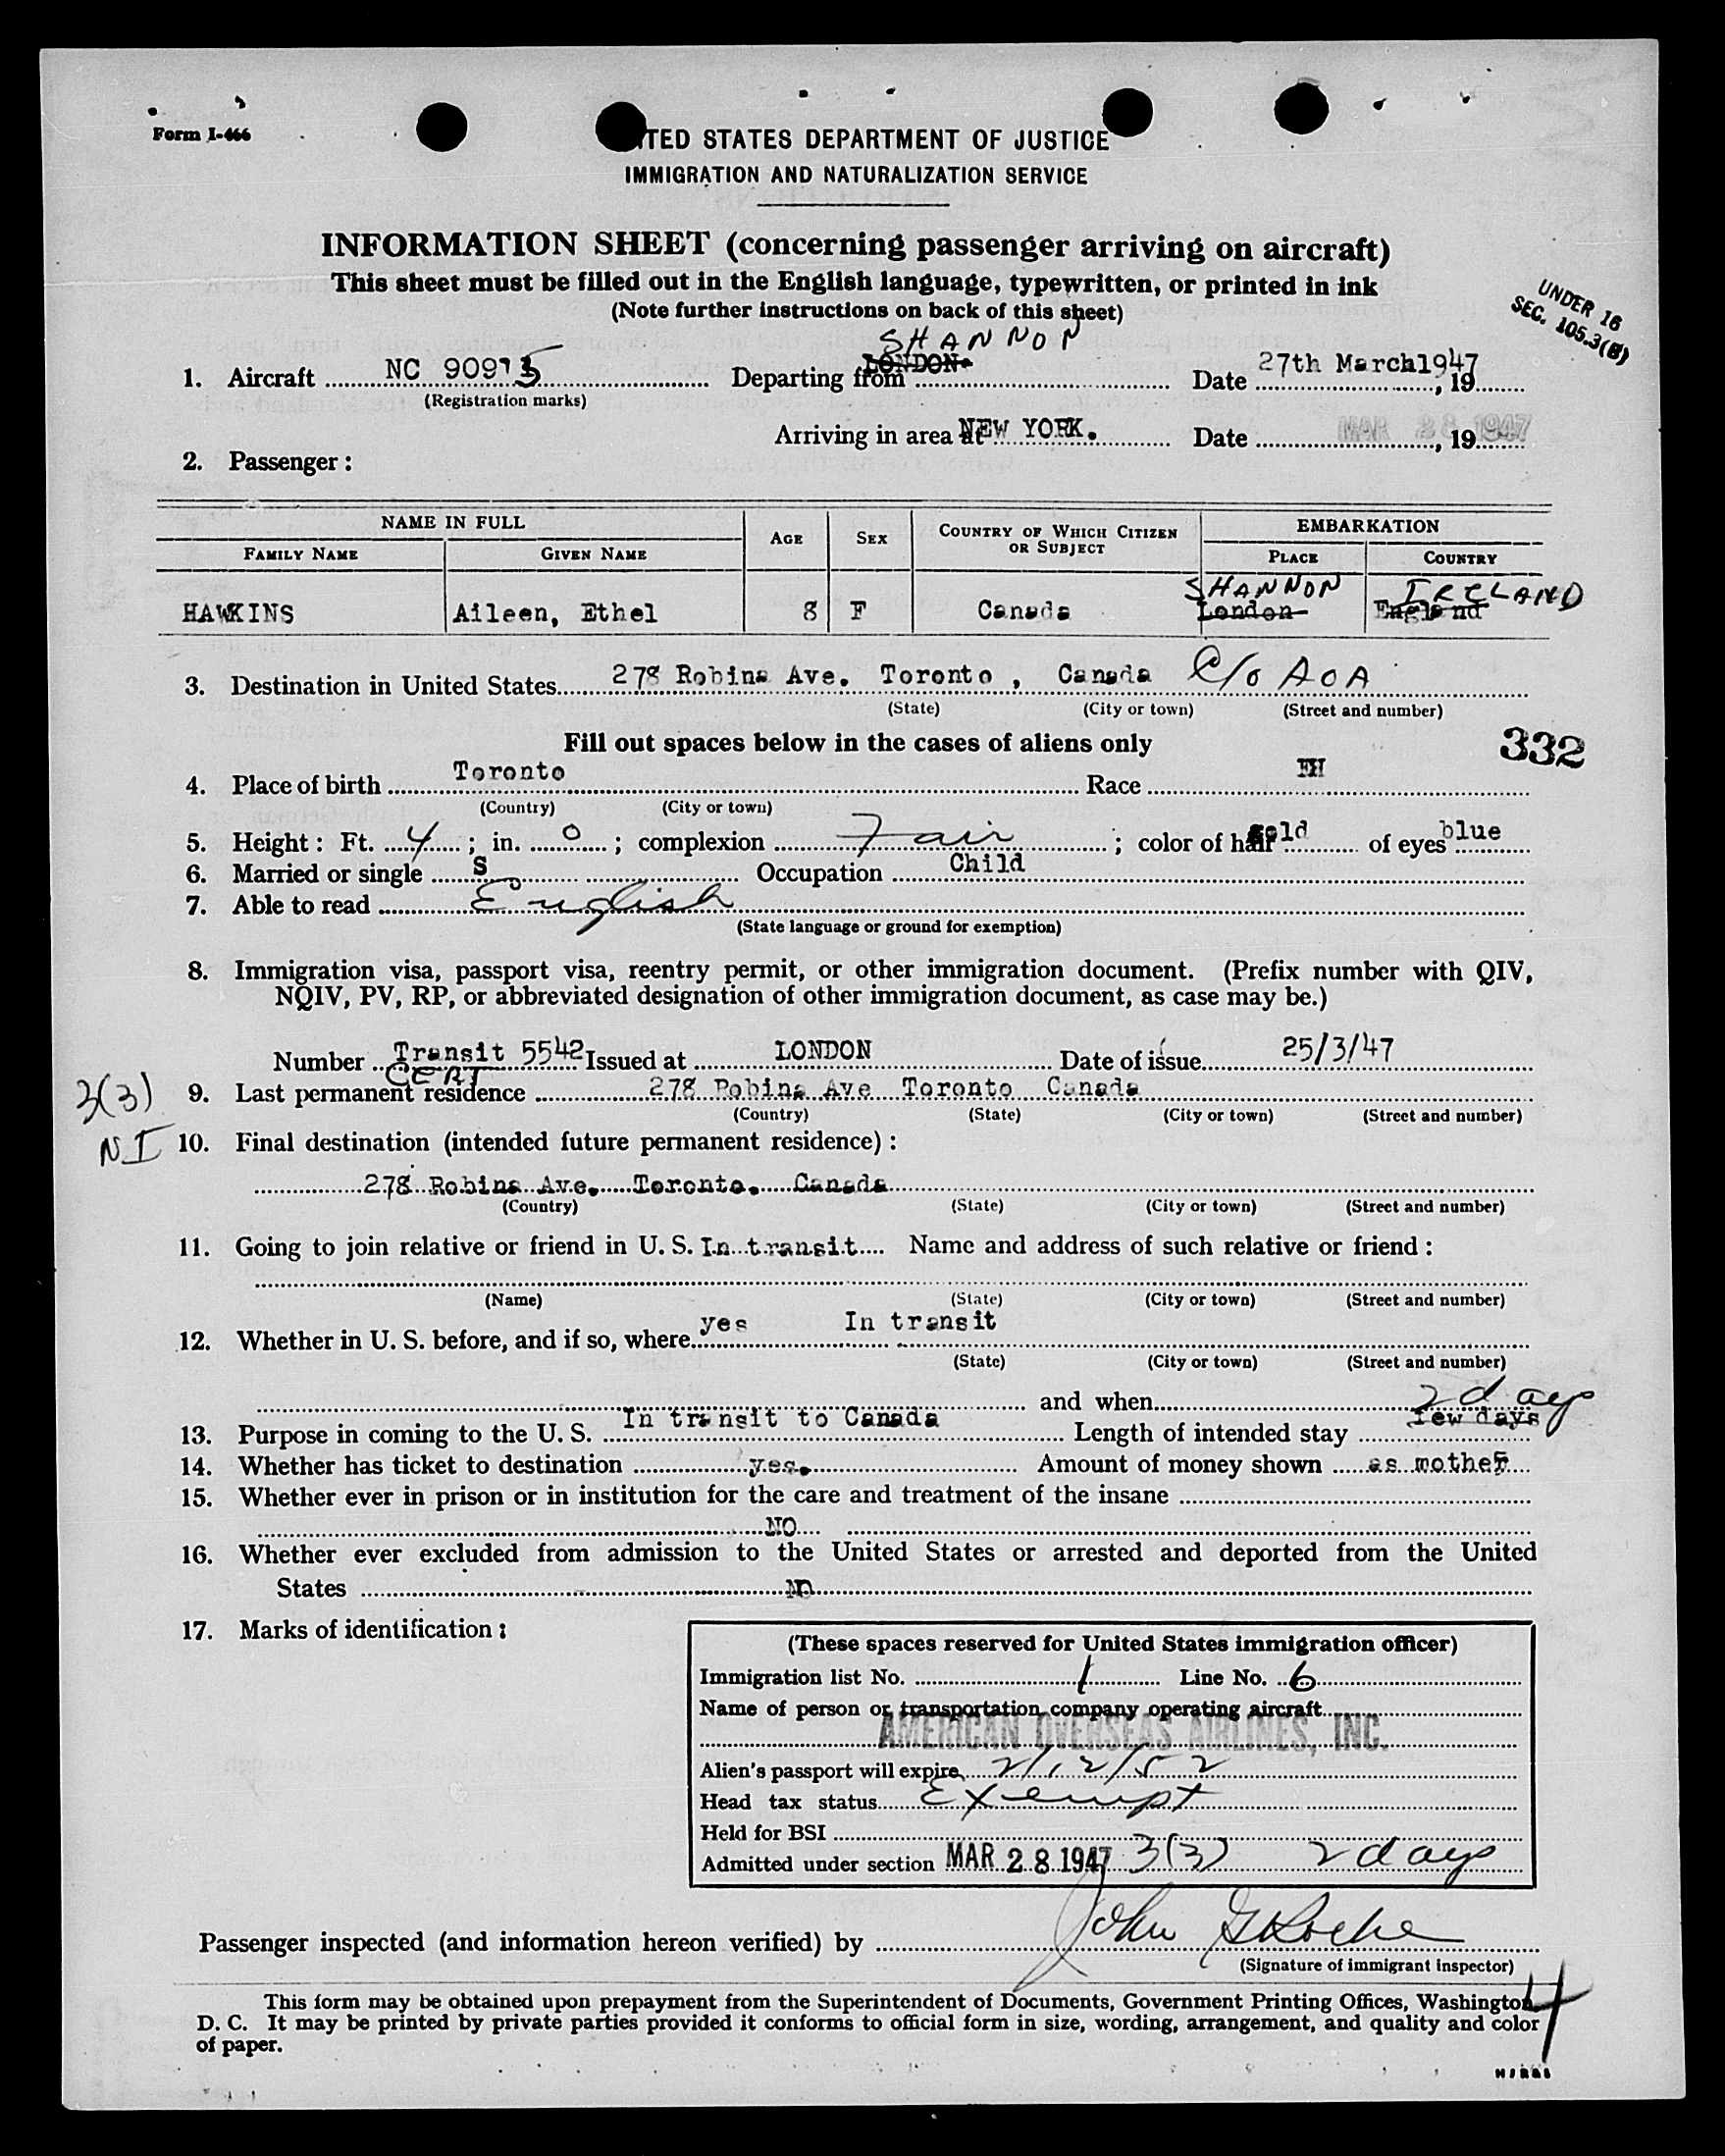 Form I-466
UNITED STATES DEPARTMENT OF JUSTICE
IMMIGRATION AND NATURALIZATION SERVICE
INFORMATION SHEET (concerning passenger arriving on aircraft)
This sheet must be filled out in the English language, typewritten, or printed in ink
(Note further instructions on back of this sheet)
UNDER 16
SEC. 105.3(B)
SHANNON
1. Aircraft NC 90915 Departing from LONDON Date 27th March1947, 19
(Registration marks)
Arriving in area at NEW YORK. Date MAR 28 1947, 19
2. Passenger:
NAME IN FULL AGE SEX COUNTRY OF WHICH CITIZEN OR SUBJECT EMBARKATION
FAMILY NAME GIVEN NAME PLACE COUNTRY
SHANNON IRELAND
HAWKINS Aileen, Ethel 8 F Canada London England
3. Destination in United States 278 Robina Ave. Toronto, Canada C/o AOA
(State) (City or town) (Street and number)
Fill out spaces below in the cases of aliens only
332
4. Place of birth Toronto Race
(Country) (City or town)
5. Height: Ft. 4; in. 0; complexion Fair; color of hair gold of eyes blue
6. Married or single S Occupation Child
7. Able to read English
(State language or ground for exemption)
8. Immigration visa, passport visa, reentry permit, or other immigration document. (Prefix number with QIV,
NQIV, PV, RP, or abbreviated designation of other immigration document, as case may be.)
Number Transit 5542 Issued at LONDON Date of issue 25/3/47
CERT
3(3) 9. Last permanent residence 278 Robina Ave Toronto Canada
(Country) (State) (City or town) (Street and number)
NI 10. Final destination (intended future permanent residence):
278 Robina Ave. Toronto. Canada
(Country) (State) (City or town) (Street and number)
11. Going to join relative or friend in U. S. In transit Name and address of such relative or friend:
(Name) (State) (City or town) (Street and number)
12. Whether in U. S. before, and if so, where yes In transit
(State) (City or town) (Street and number)
and when
2 days
13. Purpose in coming to the U. S. In transit to Canada Length of intended stay few days
14. Whether has ticket to destination yes. Amount of money shown as mother
15. Whether ever in prison or in institution for the care and treatment of the insane
NO
16. Whether ever excluded from admission to the United States or arrested and deported from the United
States NO
17. Marks of identification:
(These spaces reserved for United States immigration officer)
Immigration list No. 1 Line No. 6
Name of person or transportation company operating aircraft
AMERICAN OVERSEAS AIRLINES, INC.
Alien's passport will expire 2/12/52
Head tax status Exempt
Held for BSI
Admitted under section MAR 28 1947 3(3) 2 days
Passenger inspected (and information hereon verified) by John G Roche
(Signature of immigrant inspector)
This form may be obtained upon prepayment from the Superintendent of Documents, Government Printing Offices, Washington
D. C. It may be printed by private parties provided it conforms to official form in size, wording, arrangement, and quality and color
of paper.
4